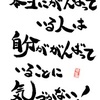 本当にがんばって
いる人は
自分ががんばって
いることに
気しづかない!